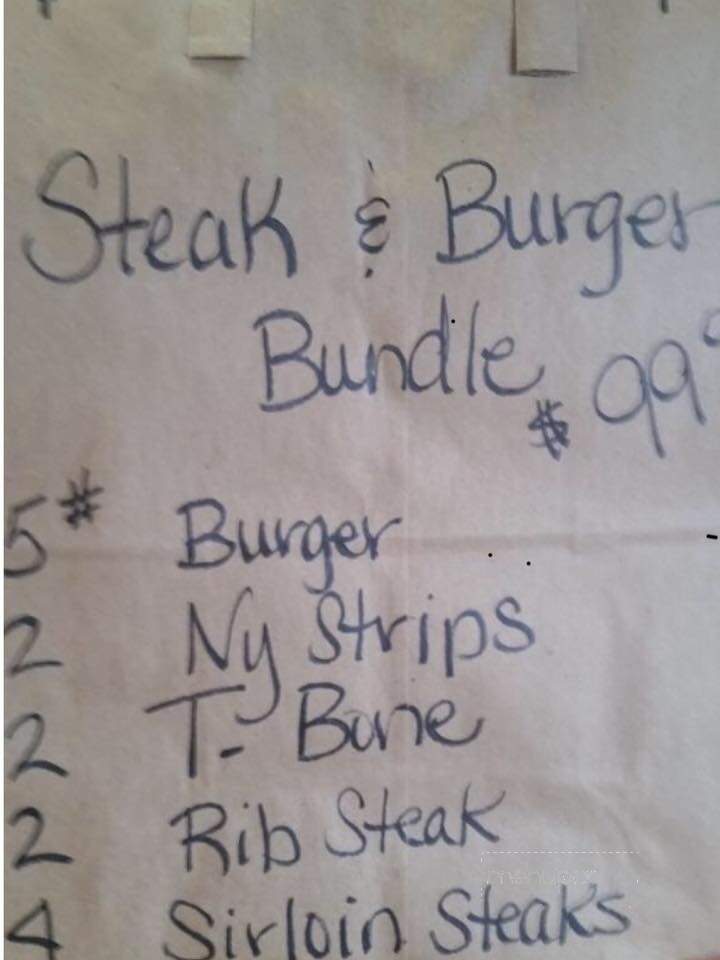 Steak & Burger
Bundle $99
5# Burger
2 Ny Strips
2 T-Bone
2 Rib Steak
4 Sirloin Steaks